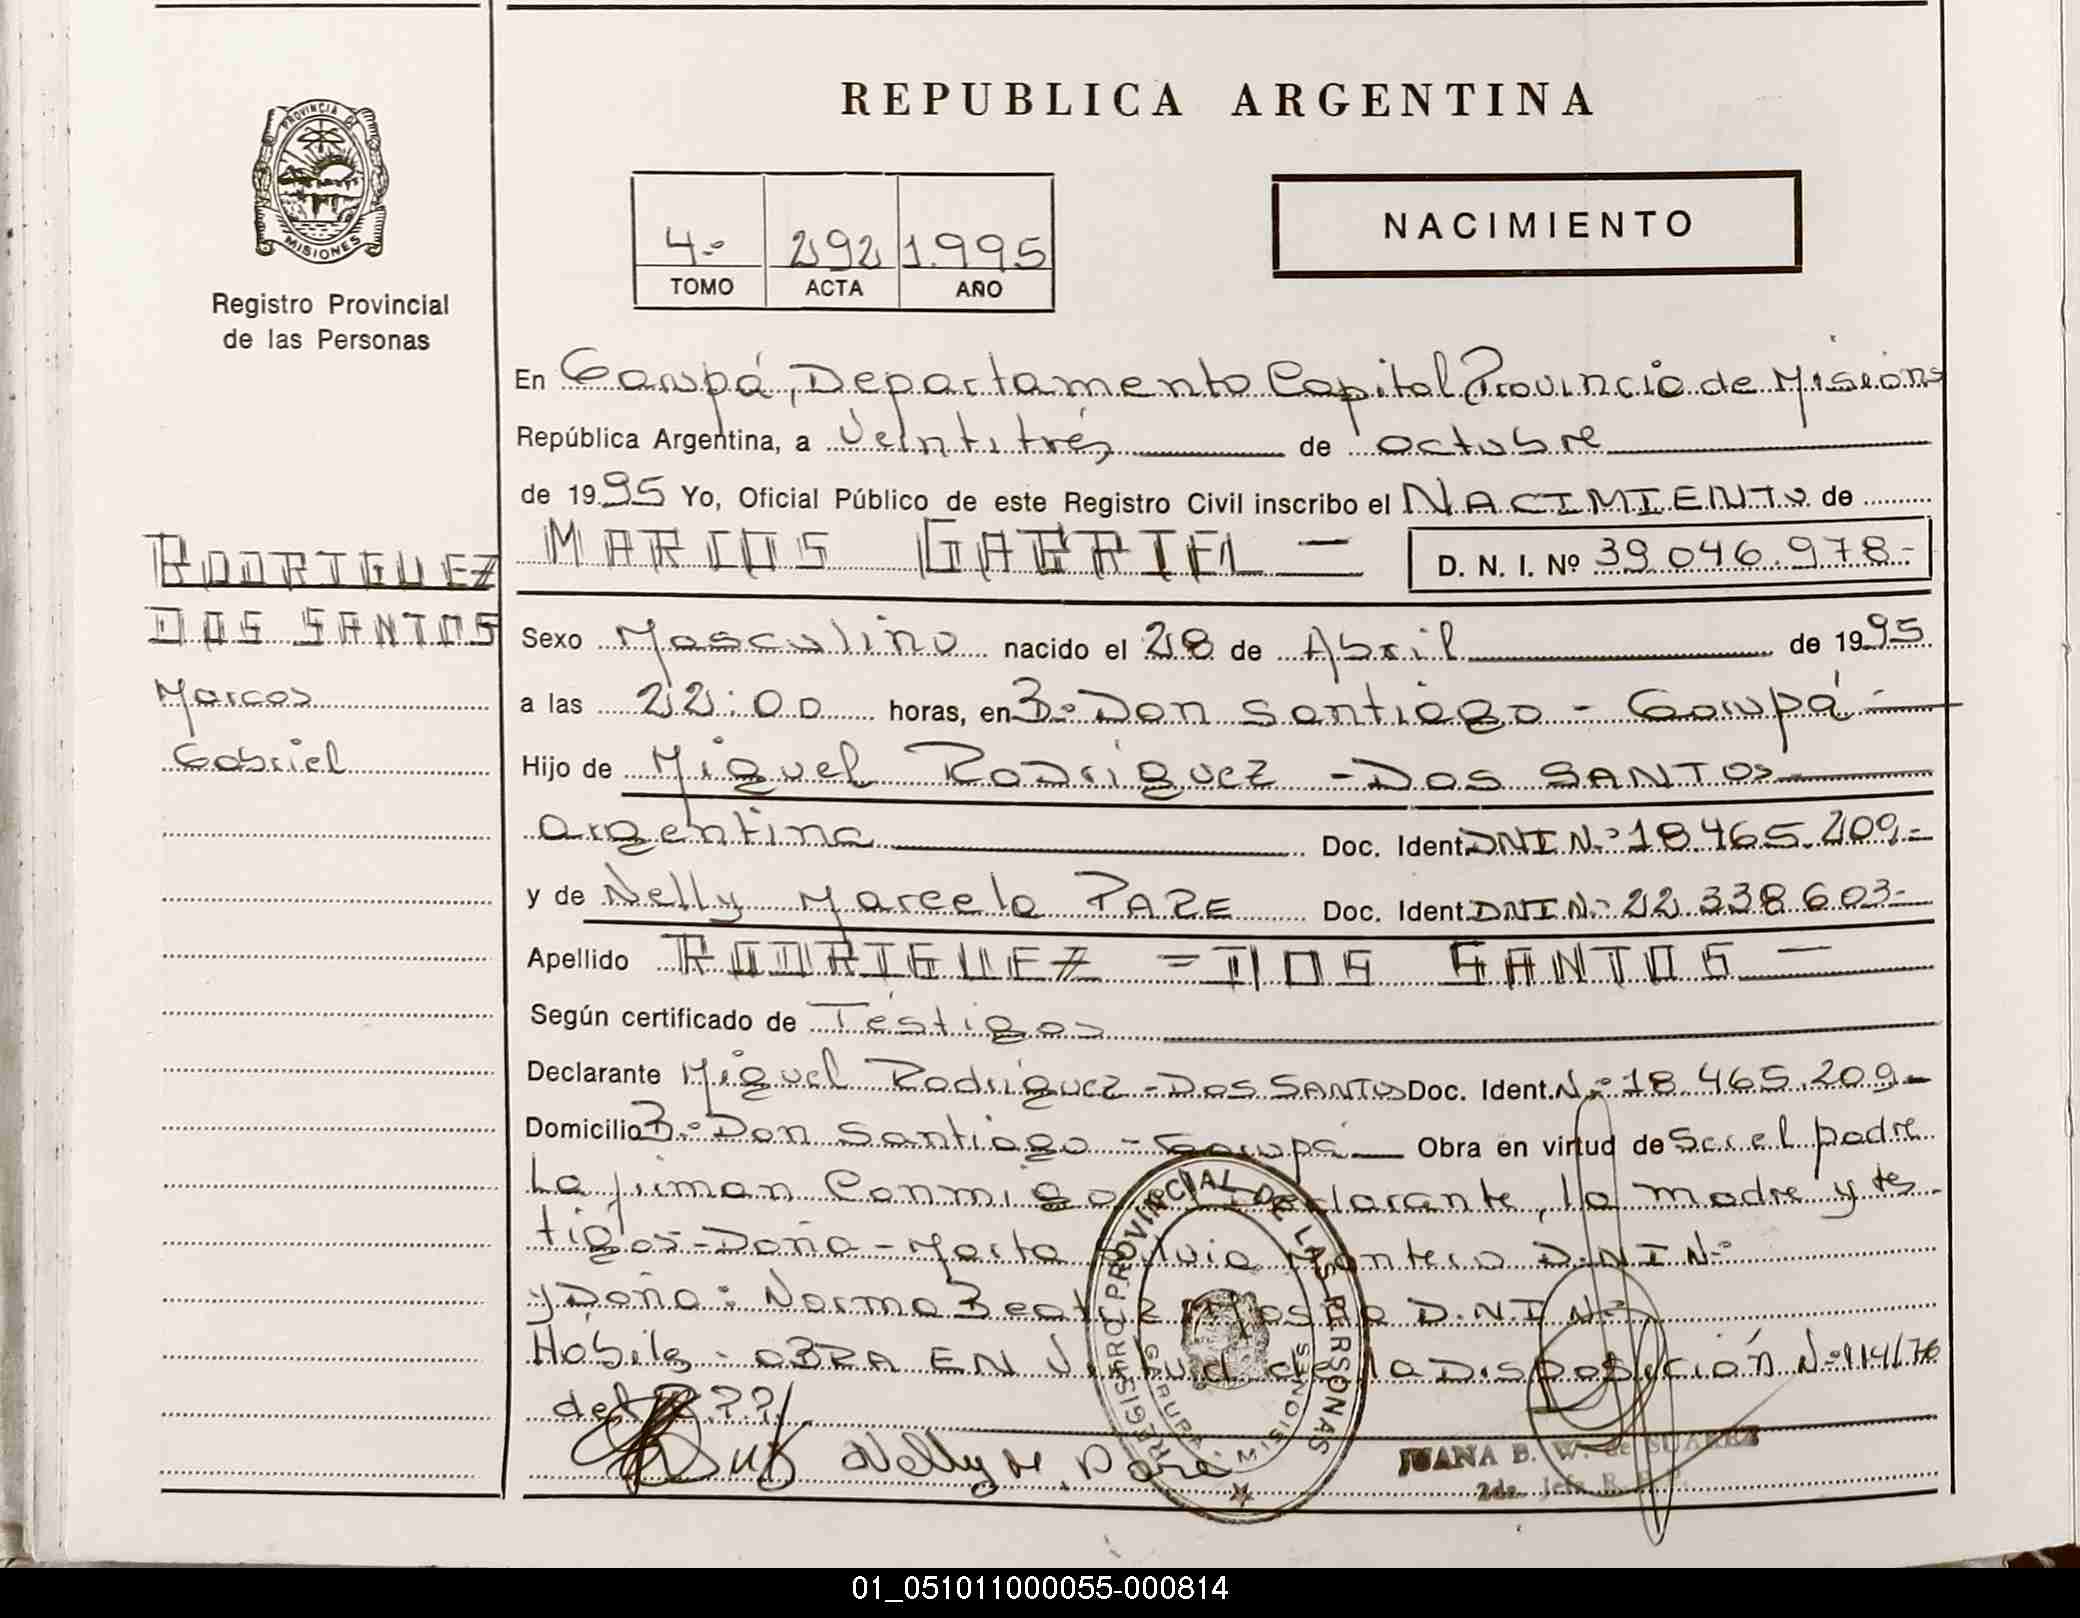 REPUBLICA ARGENTINA
PROVINCIA DE
MISIONES
Registro Provincial
de las Personas
4º 292 1.995
TOMO ACTA AÑO
NACIMIENTO
En Garupá, Departamento Capital Provincia de Misiones
República Argentina, a Veintitrés de octubre
de 1995 Yo, Oficial Público de este Registro Civil inscribo el NACIMIENTO de
MARCOS GABRIEL — D. N. I. Nº 39.046.978.-
RODRIGUEZ
DOS SANTOS
Marcos
Gabriel
Sexo Masculino nacido el 28 de Abril de 1995
a las 22:00 horas, en Bº Don Santiago - Garupá -
Hijo de Miguel Rodriguez - DOS SANTOS
argentina Doc. Ident. DNI Nº 18.465.209.-
y de Nelly Marcela PARE Doc. Ident. DNI Nº 22.338.603-
Apellido RODRIGUEZ = DOS SANTOS —
Según certificado de Téstigos
Declarante Miguel Rodríguez - DOS SANTOS Doc. Ident. Nº 18.465.209.-
Domicilio Bº Don Santiago - Garupá — Obra en virtud de Ser el padre
La firman Conmigo el Declarante, la madre y tes
tigos - Doña - Marta Silvia Montero D.N.I Nº
y Doña: Norma Beatriz D.N.I Nº
Hábiles - OBRA EN Virtud de la Disposición Nº 114/76
del R.??
Nelly M. Paré
REGISTRO PROVINCIAL DE LAS PERSONAS
GARUPA MISIONES
JUANA B. W. de SUAREZ
2da. Jefa R. P. P.
01_051011000055-000814